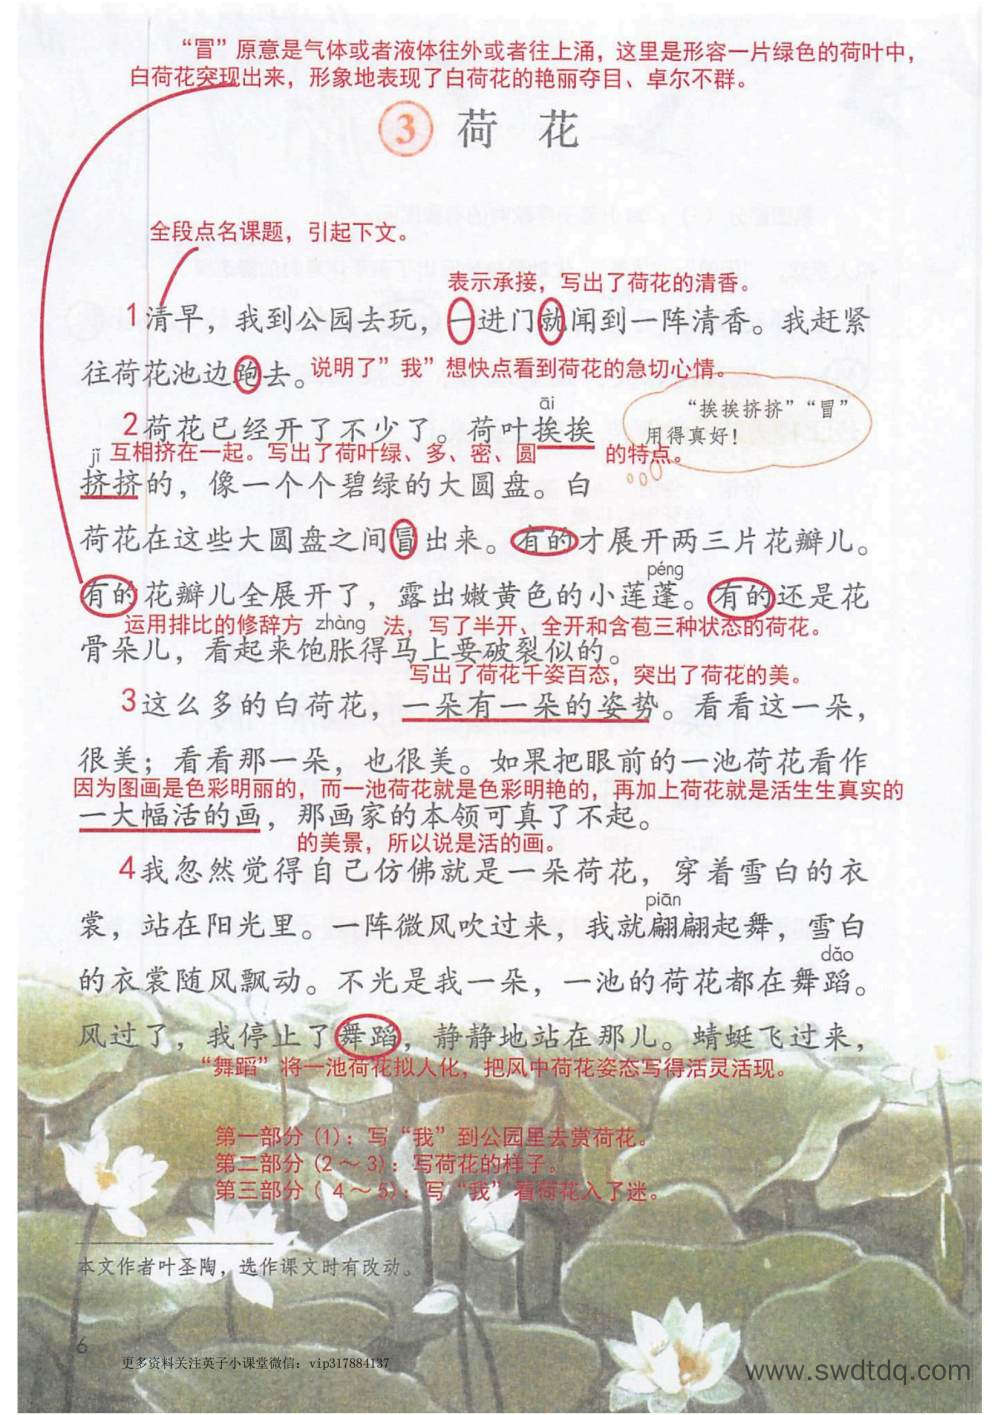 “冒”原意是气体或者液体往外或者往上涌，这里是形容一片绿色的荷叶中，
白荷花突现出来，形象地表现了白荷花的艳丽夺目、卓尔不群。
3 荷 花
全段点名课题，引起下文。
表示承接，写出了荷花的清香。
1清早，我到公园去玩，一进门就闻到一阵清香。我赶紧
往荷花池边跑去。说明了”我”想快点看到荷花的急切心情。
āi
“挨挨挤挤”“冒”
2荷花已经开了不少了。荷叶挨挨
用得真好！
jǐ 互相挤在一起。写出了荷叶绿、多、密、圆 的特点。
挤挤的，像一个个碧绿的大圆盘。白
荷花在这些大圆盘之间冒出来。有的才展开两三片花瓣儿。
péng
有的花瓣儿全展开了，露出嫩黄色的小莲蓬。有的还是花
运用排比的修辞方 zhàng 法，写了半开、全开和含苞三种状态的荷花。
骨朵儿，看起来饱胀得马上要破裂似的。
写出了荷花千姿百态，突出了荷花的美。
3这么多的白荷花，一朵有一朵的姿势。看看这一朵，
很美；看看那一朵，也很美。如果把眼前的一池荷花看作
因为图画是色彩明丽的，而一池荷花就是色彩明艳的，再加上荷花就是活生生真实的
一大幅活的画，那画家的本领可真了不起。
的美景，所以说是活的画。
4我忽然觉得自己仿佛就是一朵荷花，穿着雪白的衣
piān
裳，站在阳光里。一阵微风吹过来，我就翩翩起舞，雪白
dǎo
的衣裳随风飘动。不光是我一朵，一池的荷花都在舞蹈。
风过了，我停止了舞蹈，静静地站在那儿。蜻蜓飞过来，
“舞蹈”将一池荷花拟人化，把风中荷花姿态写得活灵活现。
第一部分(1)：写“我”到公园里去赏荷花。
第二部分(2～3)：写荷花的样子。
第三部分( 4～5)：写“我”看荷花入了迷。
本文作者叶圣陶，选作课文时有改动。
6
更多资料关注英子小课堂微信：vip317884137
www.swdtdq.com